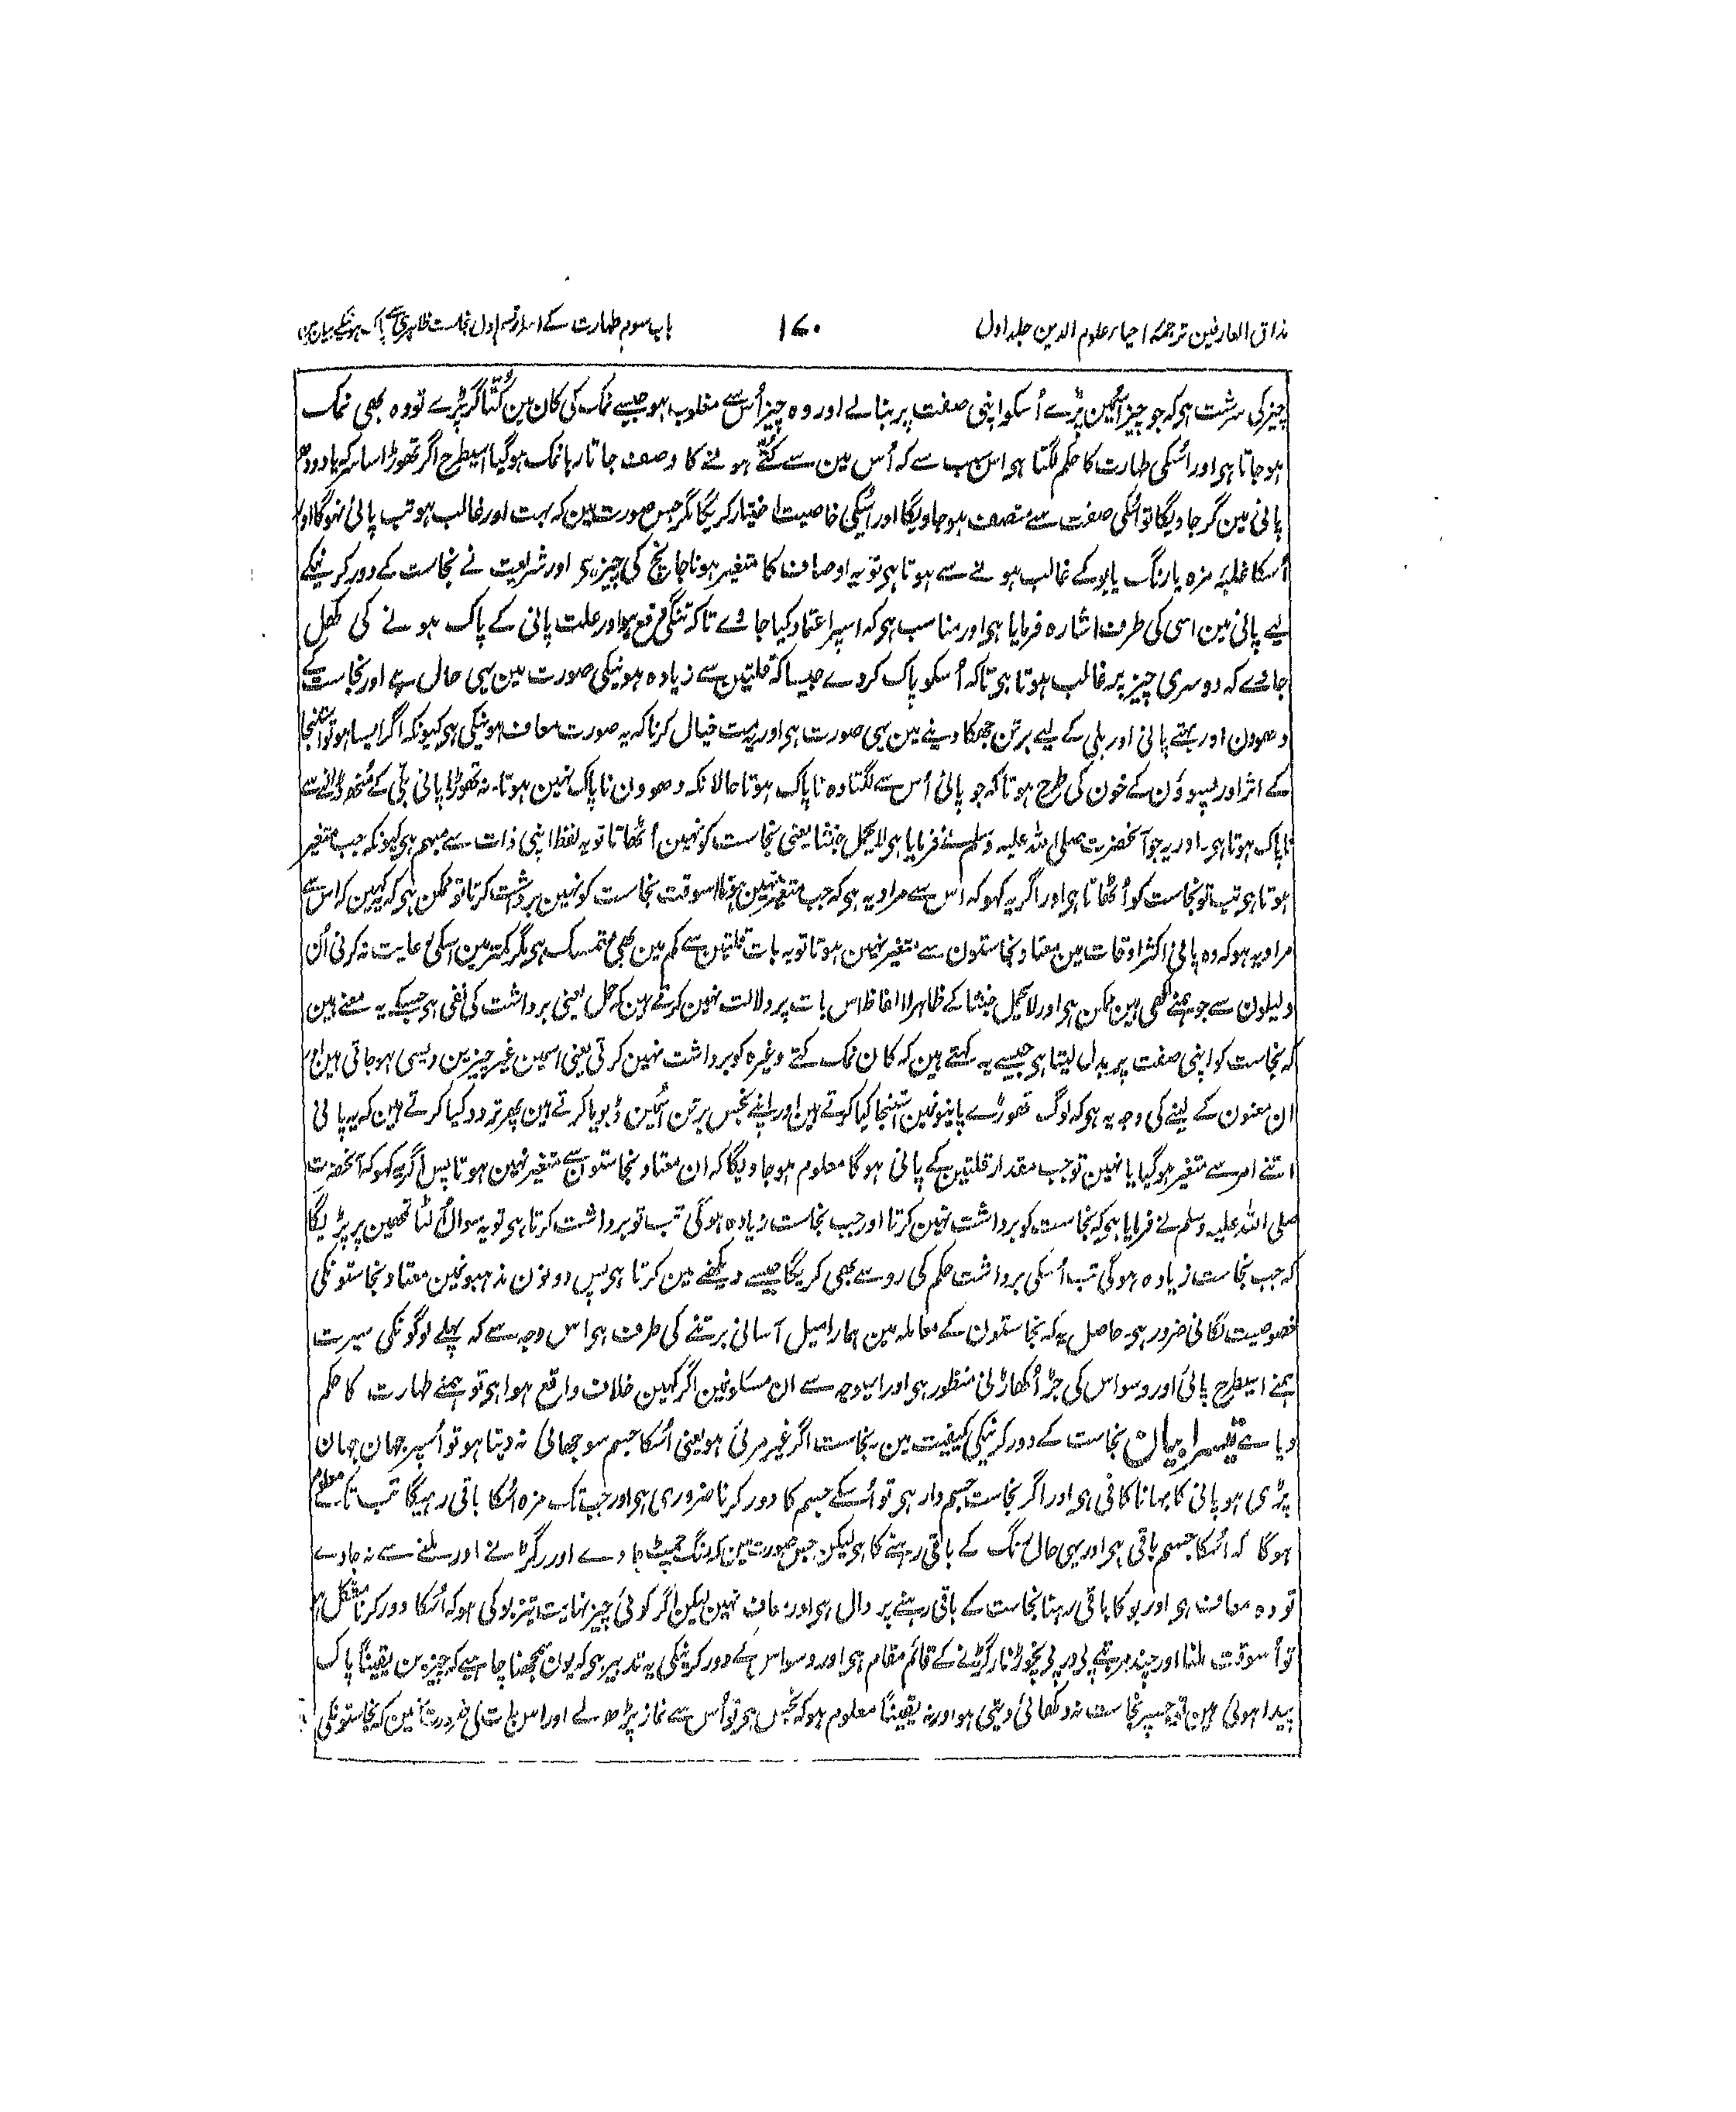 مذاق العارفین ترجمۂ احیاء علوم الدین جلد اول
۱۷۰
باب سوم طہارت کے اسرار قسم اول نجاست ظاہری سے پاک ہونیکے بیان مین
چیز کی سرشت ہی کہ جو چیز اُسمین پڑے اُسکو اپنی صفت پر بنالے اور وہ چیز اُس سے مغلوب ہو جیسے نمک کی کان مین کُتّا گر پڑے تو وہ بھی نمک
ہو جاتا ہی اور اُسکی طہارت کا حکم لگتا ہی اس سبب سے کہ اُس مین سے کُتّے ہونے کا وصف جاتا رہا نمک ہوگیا اسیطرح اگر تھوڑا سا سرکہ یا دودھ
پانی مین گر جاویگا تو اُسکی صفت سے متصف ہو جاویگا اور اُسیکی خاصیت اختیار کریگا مگر جس صورت مین کہ بہت اور غالب ہو تب پانی نہوگا اور
اُسکا غلبہ مزہ یا رنگ یا بو کے غالب ہونے سے ہوتا ہی تو یہ اوصاف کا متغیر ہونا جانچ کی چیز ہی اور شریعت نے نجاست کے دور کرنیکے
لیے پانی مین اسی کی طرف اشارہ فرمایا ہی اور مناسب ہی کہ اسپر اعتماد کیا جاوے تاکہ تنگی رفع ہو اور علت پانی کے پاک ہونے کی کھل
جاوے کہ دوسری چیز پر غالب ہوتا ہی تاکہ اُسکو پاک کردے جیسا کہ قلتین سے زیادہ ہونیکی صورت مین یہی حال ہے اور نجاست کے
دھوون اور بہتے پانی اور بلی کے لیے برتن جھکا دینے مین یہی صورت ہی اور یہ مت خیال کرنا کہ یہ صورت معاف ہونیکی ہی کیونکہ اگر ایسا ہو تو استنجا
کے اثر اور پسوؤن کے خون کی طرح ہوتا کہ جو پانی اُس سے لگتا وہ ناپاک ہوتا حالانکہ دھوون ناپاک نہین ہوتا۔ نہ تھوڑا پانی بلی کے مُنھ ڈالنے سے
ناپاک ہوتا ہی۔ اور یہ جو آنحضرت صلی اللہ علیہ وسلم نے فرمایا ہی لا یحمل خبثا یعنی نجاست کو نہین اُٹھاتا تو یہ لفظ اپنی ذات سے مبہم ہی کیونکہ جب متغیر
ہوتا ہی تب تو نجاست کو اُٹھاتا ہی اور اگر یہ کہو کہ اُس سے مراد یہ ہی کہ جب متغیر نہین ہوتا اُسوقت نجاست کو نہین برداشت کرتا تو ممکن ہی کہ یہ کہین کہ اس سے
مراد یہ ہو کہ وہ پانی اکثر اوقات مین معتاد نجاستون سے متغیر نہین ہوتا تو یہ بات قلتین سے کم مین بھی متمسک ہی مگر کمتر مین اسکی رعایت نہ کرنی اُن
دلیلون سے جو ہمنے لکھی ہین ممکن ہی اور لا یحمل خبثا کے ظاہرا الفاظ اس بات پر دلالت نہین کرتے ہین کہ حمل یعنی برداشت کی نفی ہی جسکے یہ معنے ہین
کہ نجاست کو اپنی صفت پر بدل لیتا ہی جیسے یہ کہتے ہین کہ کان نمک کتے وغیرہ کو برداشت نہین کرتی یعنی اسمین غیر چیزین ویسی ہو جاتی ہین اور
ان معنون کے لینے کی وجہ یہ ہی کہ لوگ تھوڑے پانیونمین استنجا کیا کرتے ہین اور اپنے نجس برتن اُنمین ڈبویا کرتے ہین پھر تردد کیا کرتے ہین کہ یہ پانی
اتنے امر سے متغیر ہوگیا یا نہین تو جب مقدار قلتین کے پانی ہوگا معلوم ہو جاویگا کہ ان معتاد نجاستون سے متغیر نہین ہوتا پس اگر یہ کہو کہ آنحضرت
صلی اللہ علیہ وسلم نے فرمایا ہی کہ نجاست کو برداشت نہین کرتا اور جب نجاست زیادہ ہوگی تب تو برداشت کرتا ہی تو یہ سوال اُلٹا تمھین پر پڑیگا
کہ جب نجاست زیادہ ہوگی تب اُسکی برداشت حکم کی رو سے بھی کریگا جیسے دیکھنے مین کرتا ہی پس دونون مذہبونمین معتاد نجاستونکی
خصوصیت لگانی ضرور ہی۔ حاصل یہ کہ نجاستون کے معاملہ مین ہمارا میل آسانی برتنے کی طرف ہی اس وجہ سے کہ پہلے لوگونکی سیرت
ہمنے اسیطرح پائی اور وسواس کی جڑ اُکھاڑنی منظور ہی اور اسیوجہ سے ان مسئلونمین اگر کہین خلاف واقع ہوا ہی تو ہمنے طہارت کا حکم
دیا ہے تیسرا بیان نجاست کے دور کرنیکی کیفیت مین۔ نجاست اگر غیر مرئی ہو یعنی اُسکا جسم سوجھائی نہ دیتا ہو تو اُسپر جہان جہان
پڑی ہو پانی کا بہانا کافی ہی اور اگر نجاست جسم دار ہی تو اُسکے جسم کا دور کرنا ضروری ہی اور جب تک مزہ اُسکا باقی رہیگا تب تک معلوم
ہوگا کہ اُسکا جسم باقی ہی اور یہی حال رنگ کے باقی رہنے کا ہی لیکن جس صورت مین کہ رنگ چمٹ جاوے اور رگڑنے اور ملنے سے نہ جاوے
تو وہ معاف ہی اور بو کا باقی رہنا نجاست کے باقی رہنے پر دال ہی اور معاف نہین لیکن اگر کوئی چیز نہایت تیز بو کی ہو کہ اُسکا دور کرنا مشکل ہو
تو اُسوقت ملنا اور چند مرتبے پی در پی نچوڑنا رگڑنے کے قائم مقام ہی اور وسواس کے دور کرنیکی یہ تدبیر ہی کہ یون سمجھنا چاہیے کہ چیزین یقیناً پاک
پیدا ہوئی ہین تو جسپر نجاست نہ دکھائی دیتی ہو اور نہ یقیناً معلوم ہو کہ نجس ہی تو اُس سے نماز پڑھ لے اور اس بات کی ضرورت نہین کہ نجاستونکی